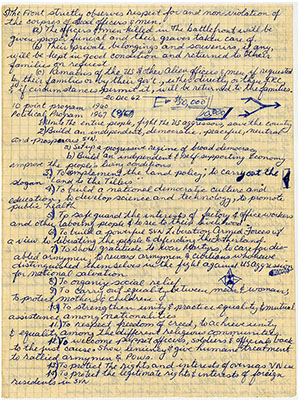 The Front strictly observes respect for and non-violation
of the corpses of dead officers & men.
a) The officers & men killed in the battlefront will be
given proper burial and their graves taken care of
b) Their private belongings and souvenirs, if any,
will be kept in good condition and returned to their
families on request.
c) Remains of the US & other alien officers & men if requested
by their families or by their friends directly or thru the
if circumstances permit it, will be returned to the families.
20 Dec 62
10 point program 1960
Political Program 1967
Unite the entire people, fight the US aggressors, save the country
2) Build an independent, democratic, peaceful, neutral
and prosperous SVN
a) Setup a progressive regime of broad democracy
b) Build an independent & self supporting economy
improve the people's living conditions.
3) To implement the land policy; to carry out the
slogan "Land to the Tillers"
4) To build a national democratic culture and
education, to develop science and technology, to promote
public health.
5) To safeguard the interests of factory & office workers
and other laboring people & to see to their livelihood
6) To build a powerful SVN Liberation Armed Forces w/
a view to liberating the people & defending the Fatherland
7) To show gratitude to dead Martyrs, to care for dis-
abled armymen, to reward armymen & civilians who have
distinguished themselves in the fight against US aggression
for national salvation
8) To organize social relief
9) To carry out equality between men & women,
to protect mothers & children
10) To strengthen unity & practice equality & mutual
assistance among nationalities
11) To respect freedom of creed, to achieve unity
& equality among the different religious communities.
12) To welcome puppet officers, soldiers & officials back
to the just cause, show leniency & give humane treatment
to rallied armymen & POWs.
13) To protect the rights and interests of overseas VN'ese
14) To protect the legitimate rights & interests of foreign
residents in SVN